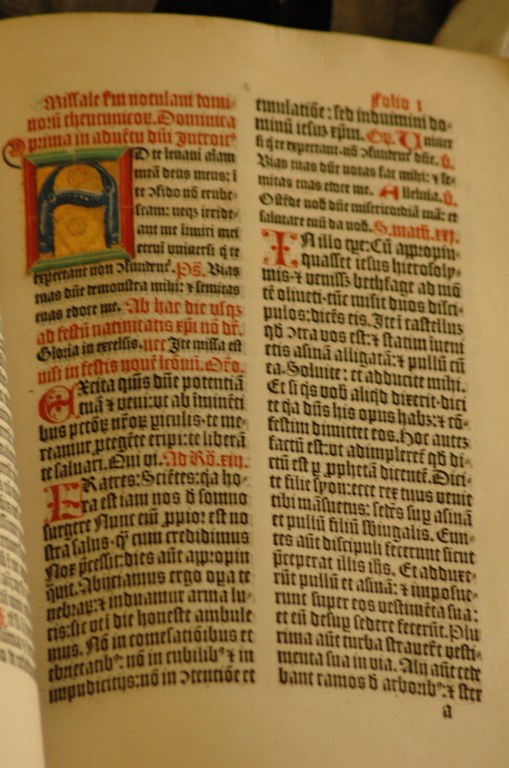 Missale s̄m notulam domi-
norū theutunicoꝝ. Dominica
prima in adūetu dn̄i Introit⁹
AD te leuaui aīam
meā deus meus: ī
te ↄfido nō erube-
scam: neqꝫ irride-
ant me īimici mei
etenī vniuersi q̇ te
expectant non ↄfundent̄. Ps̄. Vias
tuas dn̄e demonstra mihi: ⁊ semitas
tuas edoce me. Ab hac die vsqꝫ
ad festū natiuitatis xp̄i nō dr̄.
Gloria in excelsis. nec Ite missa est
nisi in festis nouē lc̄onū. Or̄o.
EXcita q̄sūs dn̄e potentiā
tuā ⁊ veni: vt ab īminēti
bus pctōꝝ nr̄oꝝ ꝑiculis. te me-
reamur ꝓtegēte eripi: te liberā
te saluari. Qui vi. Ad Ro. xiii.
FRatres: Sciētes: qꝛ ho-
ra est iam nos d̄ somno
surgere Nunc em̄ ꝓpior est no
stra salus. q̄ꝫ cum credidimus
Nox p̄cessit: dies aūt aꝓpin
q̇uit. Abijciamus ergo oꝑa te
nebraꝝ: ⁊ induamur arma lu-
cis: sic vt ī die honeste ambule
mus. Nō in comesatiōibus et
ebrietatib⁹: nō in cubilib⁹ ⁊ in
impudicitijs: nō in ↄtentiōe et
Folio I
emulatiōe: sed induimini do-
minū iesuꝫ xp̄m. Gr̄. Vniuer
si q̇ te expectant. nō ↄfundent̄ dn̄e. v̄.
Vias tuas dn̄e notas fac mihi: ⁊ se-
mitas tuas edoce me. Alleluia. v̄.
Ostēde nob̄ dn̄e misericordiā tuā: et
salutare tuū da nob̄. S. math. xxi.
IN illo tꝑe: Cū aꝓpin-
quasset iesus hierosoly-
mis. ⁊ venissꝫ bethfage ad mō
tē oliueti: tūc misit duos disci-
pulos: dicēs eis. Ite ī castelluꝫ
qd̄ ↄtra vos est: ⁊ statim īueni
etis asinā alligatā: ⁊ pullū cū
ea. Soluite: et adducite mihi.
Et si q̇s vob̄ aliqd̄ dixerit: dici
te qꝛ dn̄s his opus habꝫ: ⁊ cō-
festim dimittet eos. Hoc auteꝫ
factū est: vt adimpleret̄ qd̄ di-
ctū est ꝑ ꝓphetā dicentē. Dici-
te filie syon: ecce rex tuus venit
tibi māsuetus: sedēs suꝑ asinā
et pullū filiū sbiugalis. Eun-
tes aūt discipuli fecerunt sicut
p̄ceperat illis ih̄s. Et adduxe-
rūt pullū et asinā: ⁊ imposue-
runt super eos vestimēta sua:
et eū desuꝑ sedere fecerūt. Plu
rima aūt turba strauert̄ vesti-
menta sua in via. Alij aūt cede
bant ramos d̄ arborib⁹: ⁊ ster
a